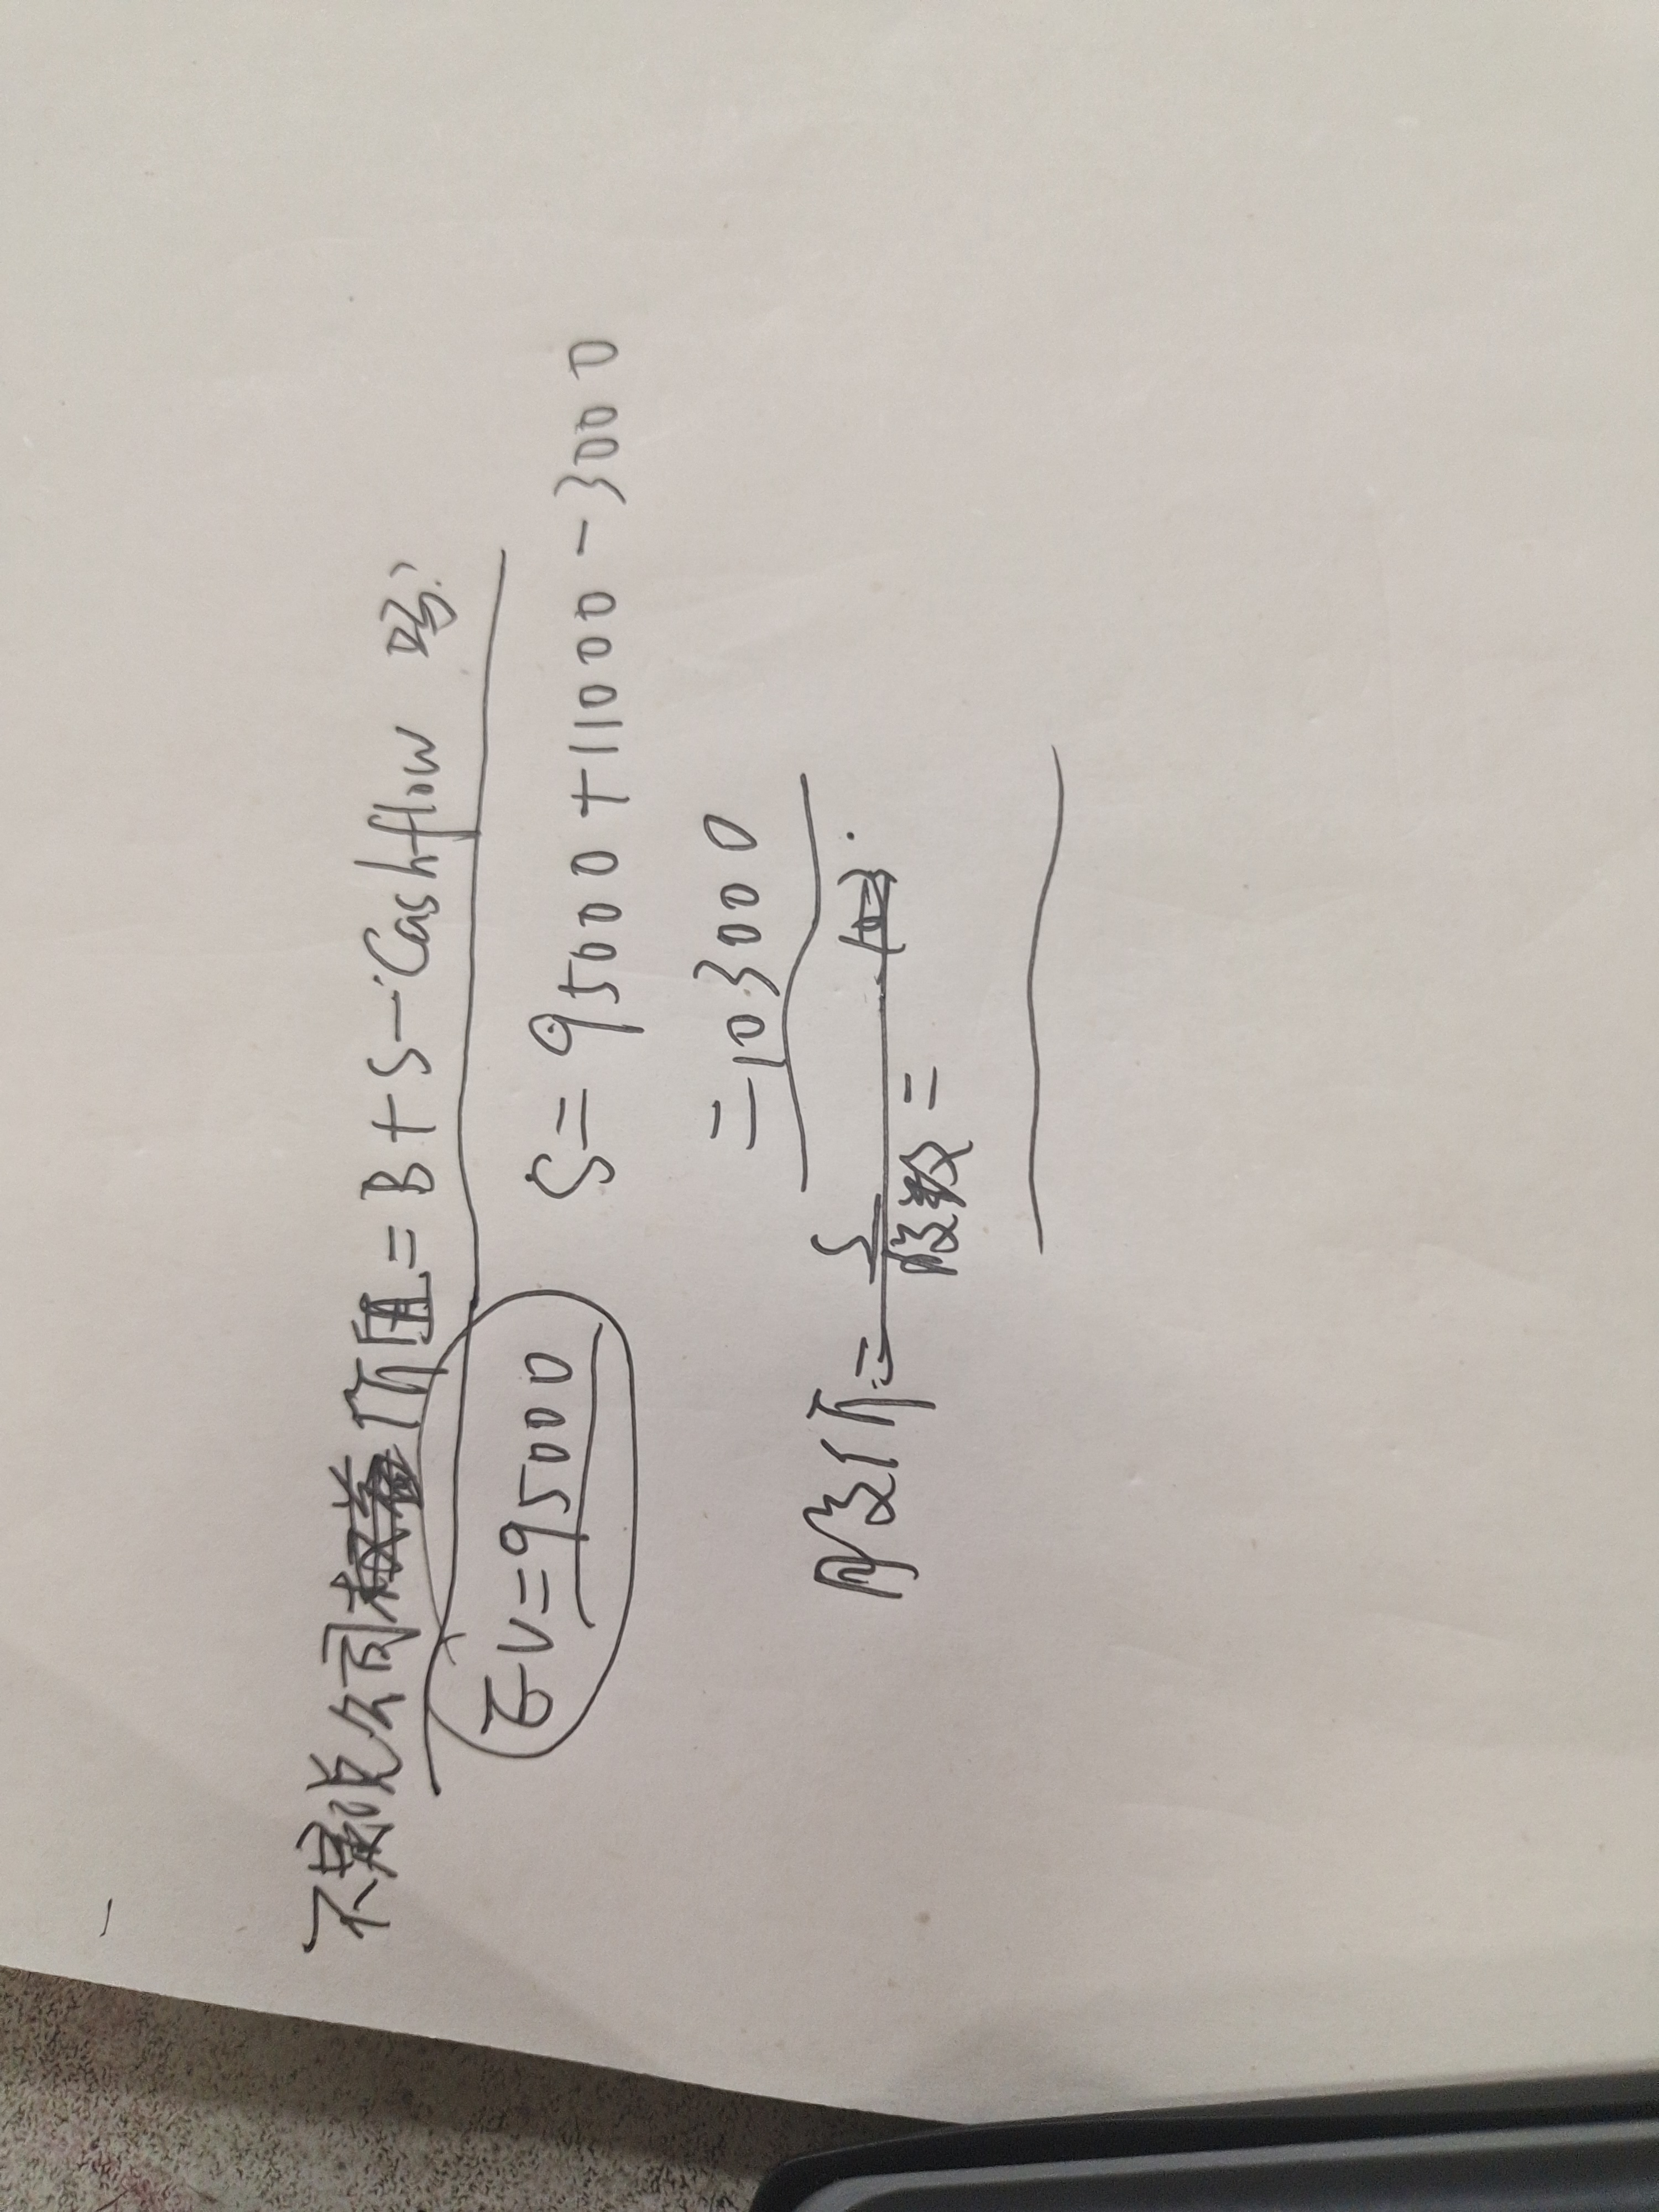 不是说公司价值=B+S-Cashflow 吗
EV=95000 S=95000+11000-3000
=103000
股价=S/股数=